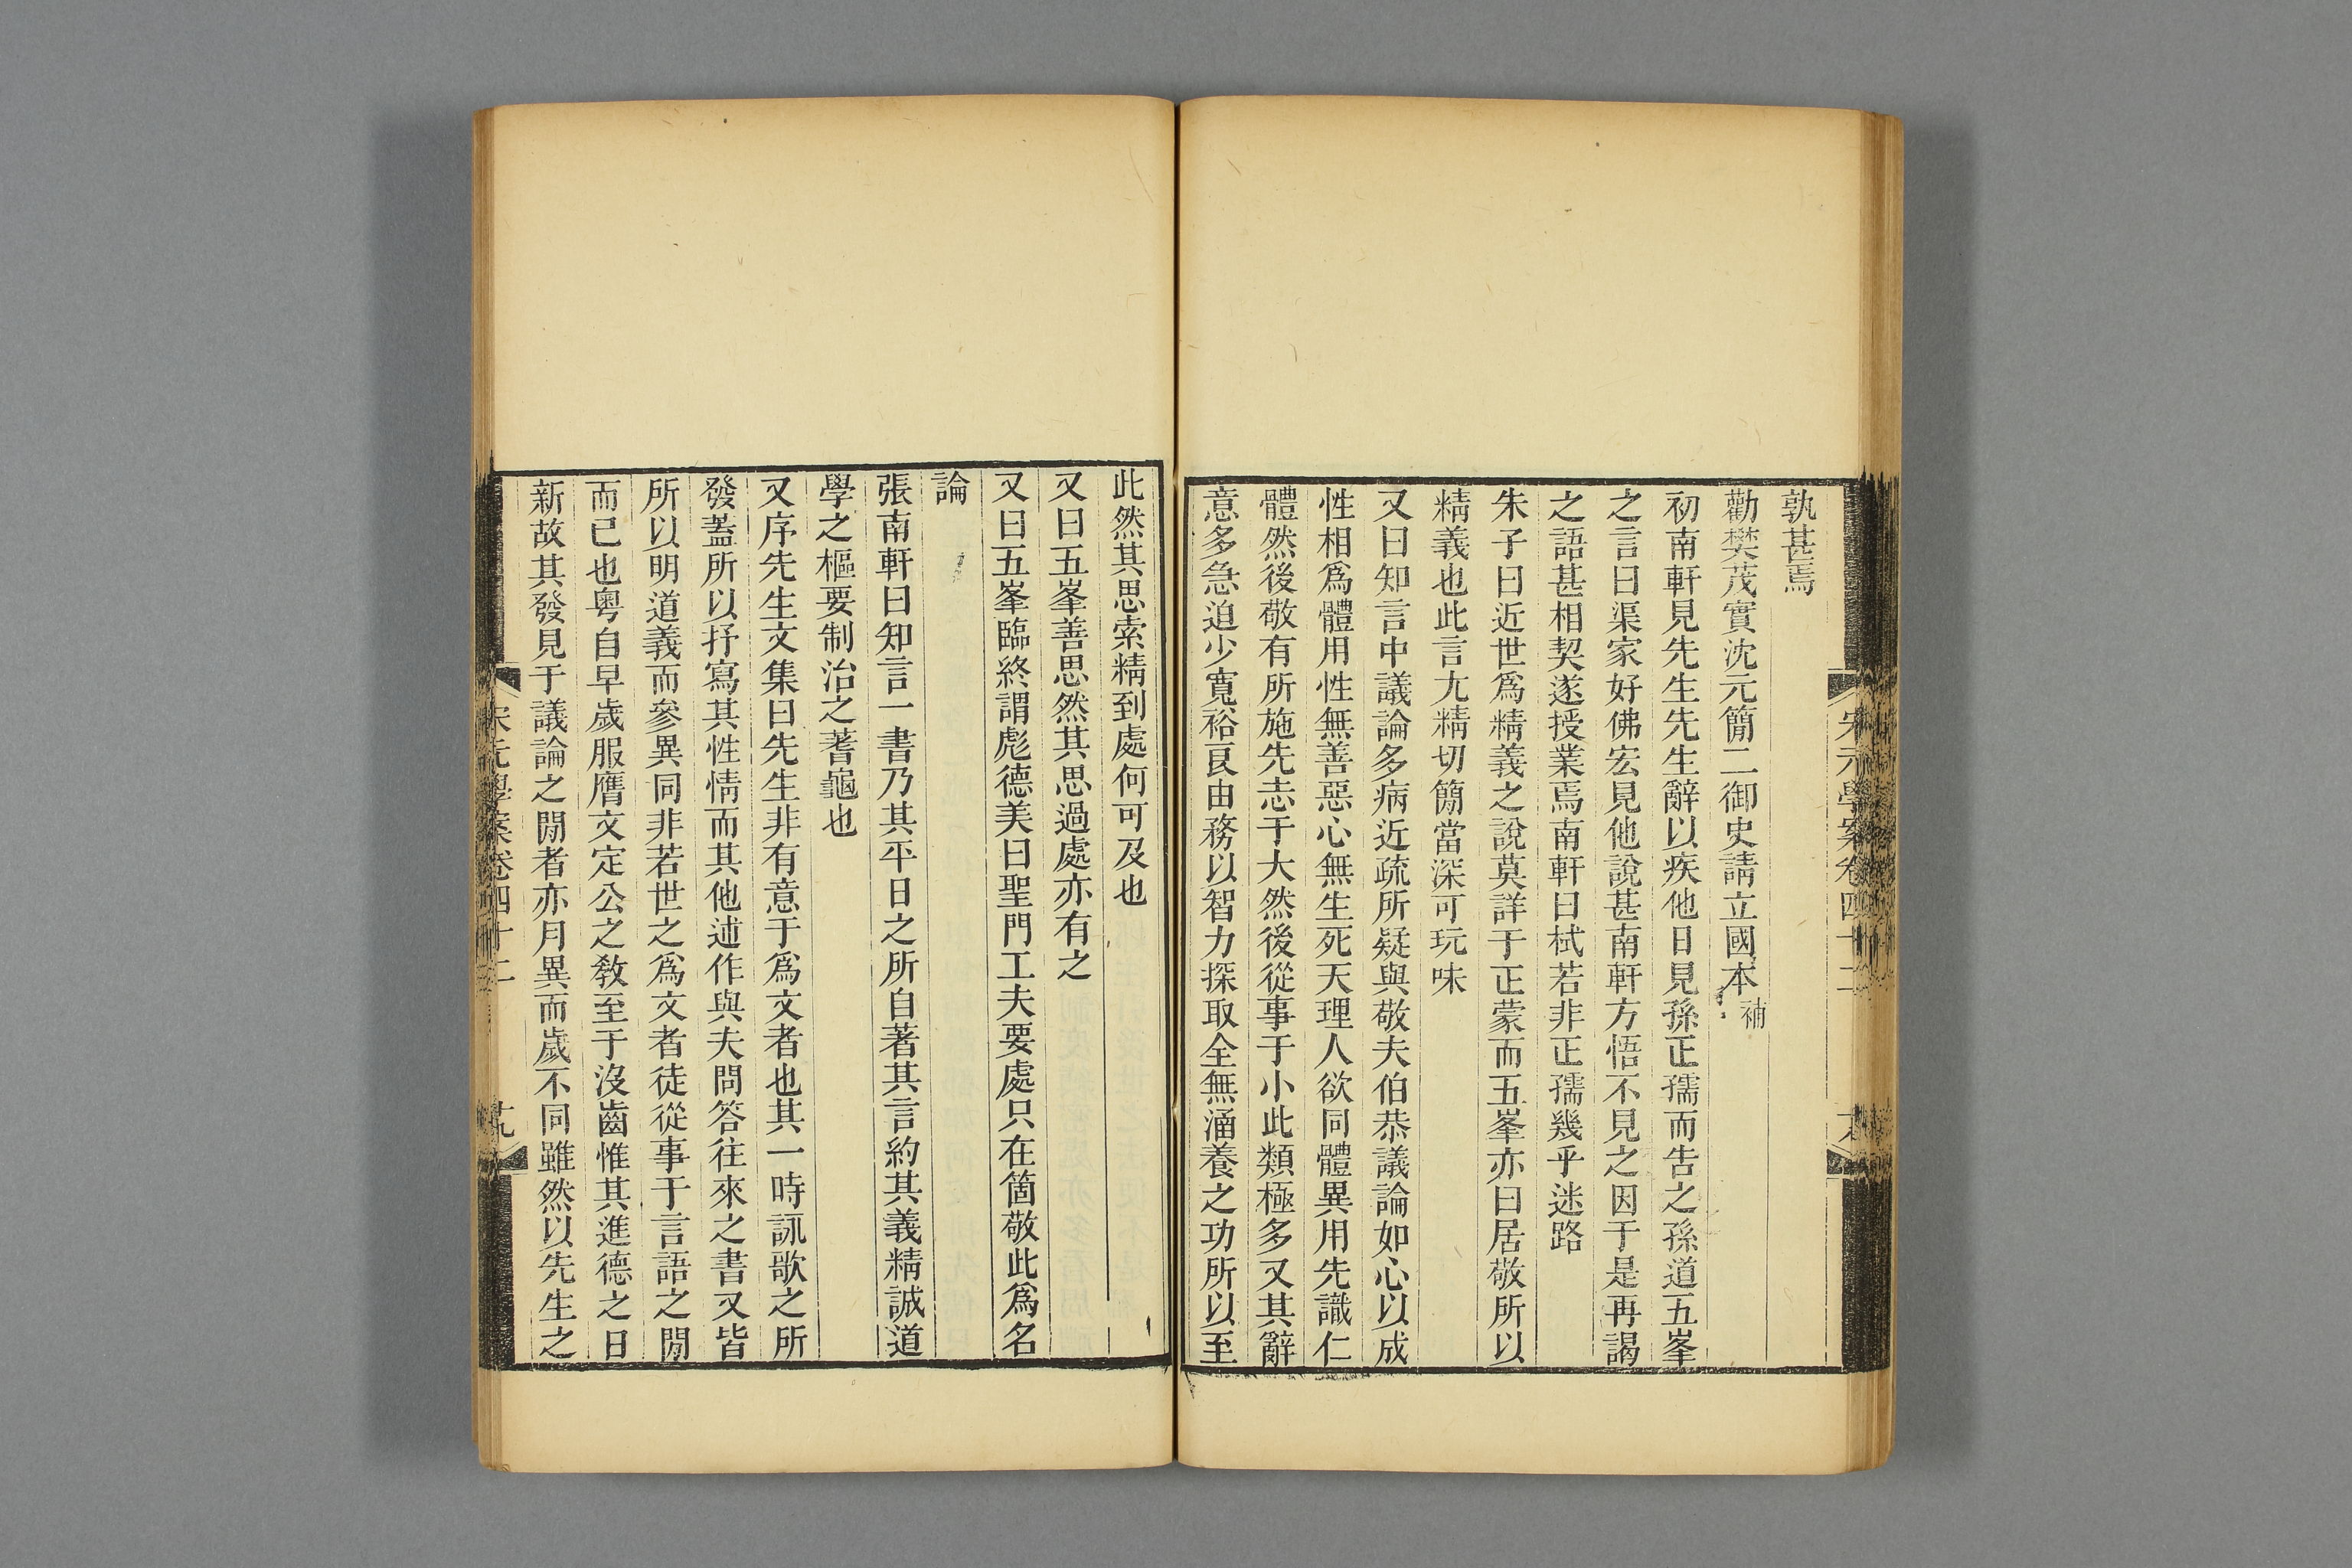 孰甚焉
勸樊茂實沈元簡二御史請立國本補
初南軒見先生先生辭以疾他日見孫正孺而告之孫道五峯
之言曰渠家好佛宏見他說甚南軒方悟不見之因于是再謁
之語甚相契遂授業焉南軒曰栻若非正孺幾乎迷路
朱子曰近世爲精義之說莫詳于正蒙而五峯亦曰居敬所以
精義也此言尤精切簡當深可玩味
又曰知言中議論多病近疏所疑與敬夫伯恭議論如心以成
性相爲體用性無善惡心無生死天理人欲同體異用先識仁
體然後敬有所施先志于大然後從事于小此類極多又其辭
意多急迫少寬裕良由務以智力探取全無涵養之功所以至
此然其思索精到處何可及也
又曰五峯善思然其思過處亦有之
又曰五峯臨終謂彪德美曰聖門工夫要處只在箇敬此爲名
論
張南軒曰知言一書乃其平日之所自著其言約其義精誠道
學之樞要制治之蓍龜也
又序先生文集曰先生非有意于爲文者也其一時詠歌之所
發蓋所以抒寫其性情而其他述作與夫問答往來之書又皆
所以明道義而參異同非若世之爲文者徒從事于言語之閒
而已也粵自早歲服膺文定公之敎至于沒齒惟其進德之日
新故其發見于議論之閒者亦月異而歲不同雖然以先生之
宋元學案卷四十二